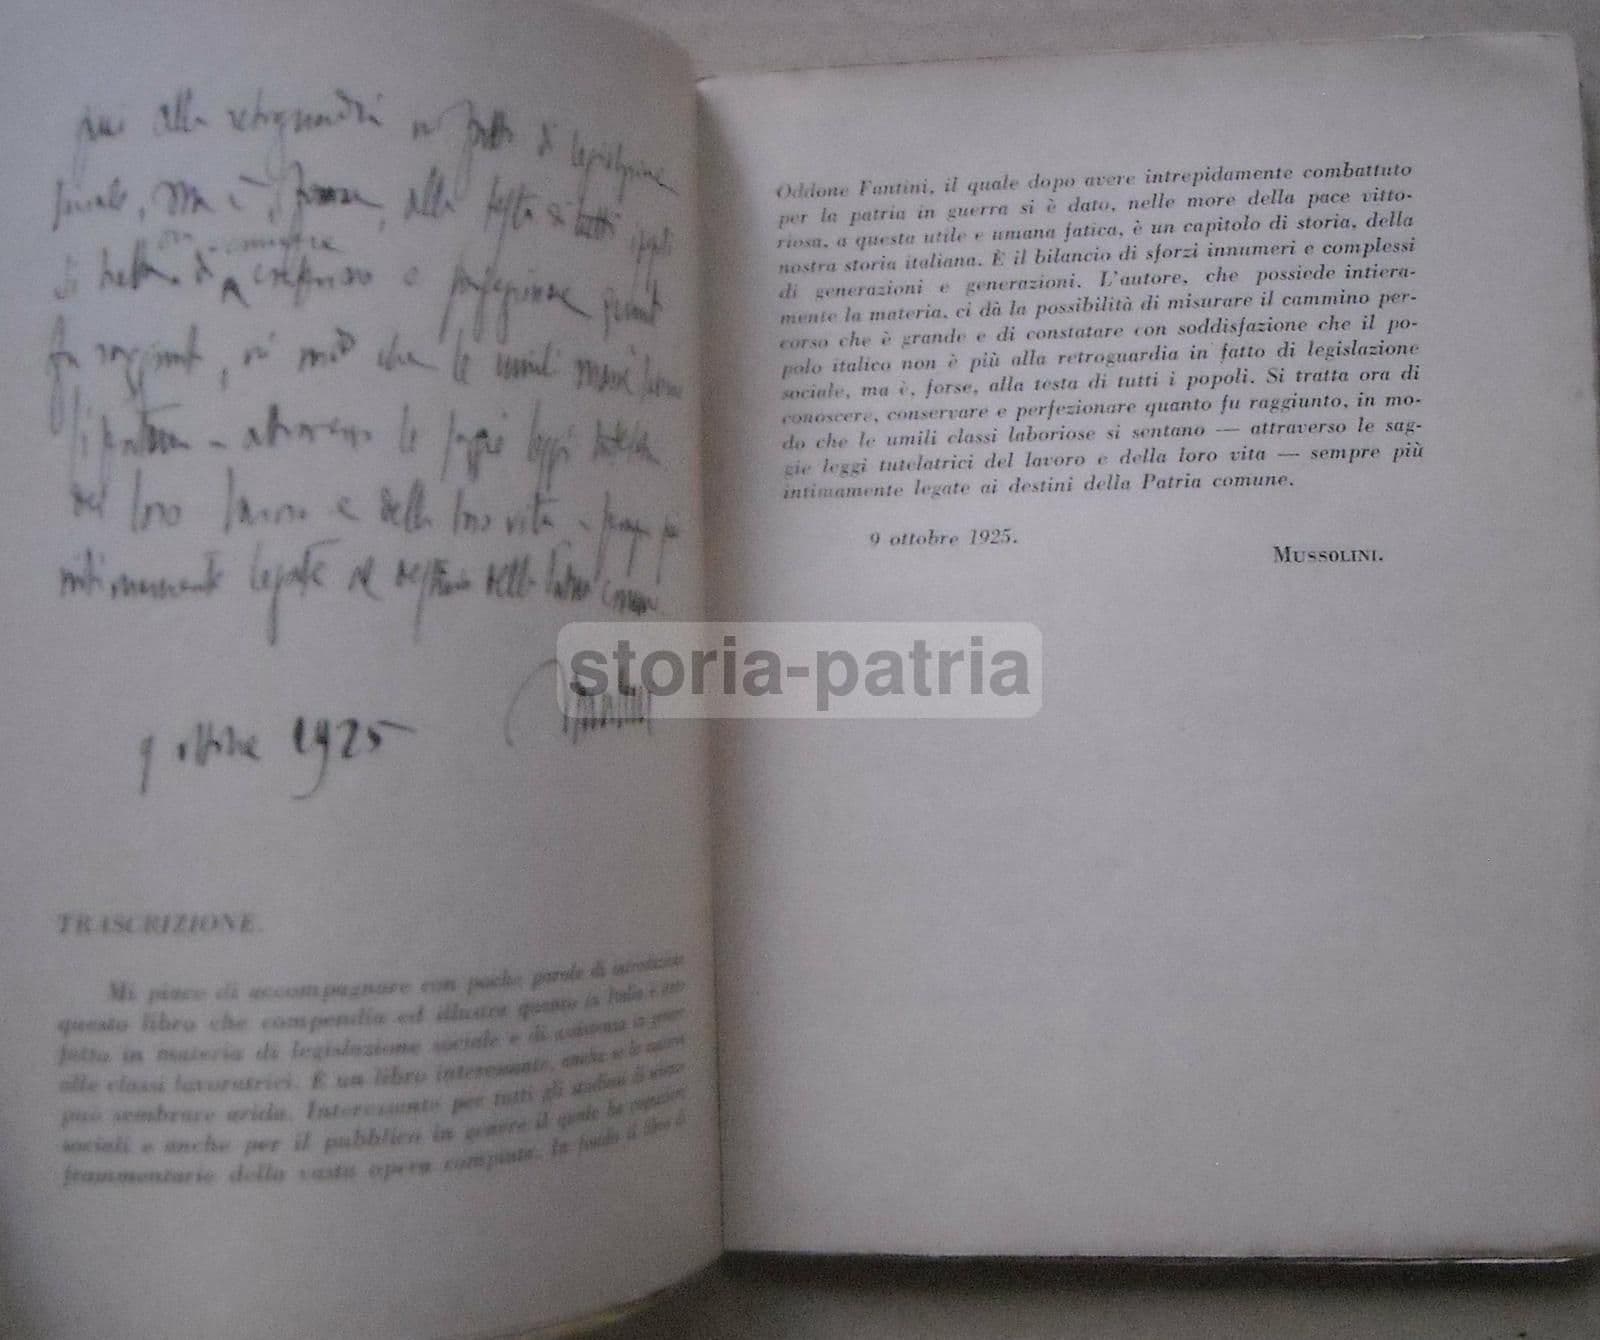 più alla retroguardia in fatto di legislazione
sociale, ma è, forse, alla testa di tutti i popoli
Si tratta ora di conoscere
conservare e perfezionare quanto
fu raggiunto, in modo che le umili classi
si sentano — attraverso le saggie leggi tutelatrici
del loro lavoro e della loro vita — sempre più
intimamente legate ai destini della Patria comune
9 ottobre 1925
TRASCRIZIONE.
Mi piace di accompagnare con poche parole di introduzione
questo libro che compendia ed illustra quanto in Italia è stato
fatto in materia di legislazione sociale e di assistenza in genere
alle classi lavoratrici. È un libro interessante, anche se la materia
può sembrare arida. Interessante per tutti gli studiosi di scienze
sociali e anche per il pubblico in genere il quale ha cognizioni
frammentarie della vasta opera compiuta. In fondo il libro di
Oddone Fantini, il quale dopo avere intrepidamente combattuto
per la patria in guerra si è dato, nelle more della pace vitto-
riosa, a questa utile e umana fatica, è un capitolo di storia, della
nostra storia italiana. È il bilancio di sforzi innumeri e complessi
di generazioni e generazioni. L'autore, che possiede intiera-
mente la materia, ci dà la possibilità di misurare il cammino per-
corso che è grande e di constatare con soddisfazione che il po-
polo italico non è più alla retroguardia in fatto di legislazione
sociale, ma è, forse, alla testa di tutti i popoli. Si tratta ora di
conoscere, conservare e perfezionare quanto fu raggiunto, in mo-
do che le umili classi laboriose si sentano — attraverso le sag-
gie leggi tutelatrici del lavoro e della loro vita — sempre più
intimamente legate ai destini della Patria comune.
9 ottobre 1925.
MUSSOLINI.
storia-patria